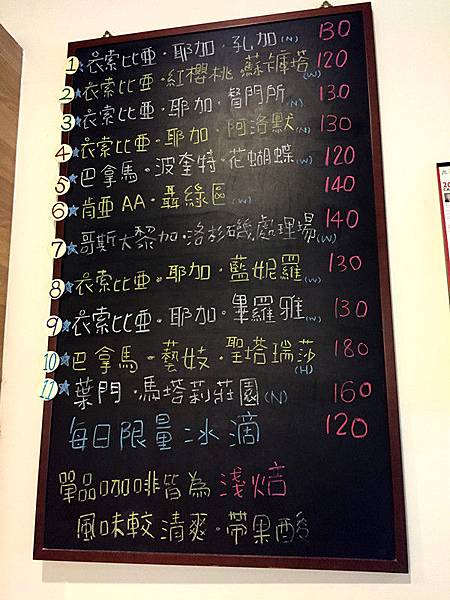 1 衣索比亞·耶加·孔加(N) 130
2 衣索比亞·紅櫻桃 蘇卡庫塔(W) 120
3 衣索比亞·耶加·督門所(N) 130
4 衣索比亞·耶加·阿洛默(N) 130
5 巴拿馬·波奎特·花蝴蝶(W) 120
6 肯亞AA·聶綠區(W) 140
7 哥斯大黎加·洛杉磯處理場(W) 140
8 衣索比亞·耶加·藍妮羅(W) 130
9 衣索比亞·耶加·畢羅雅(W) 130
10 巴拿馬·藝妓·聖塔瑞莎(H) 180
11 葉門·馬塔莉莊園(N) 160
每日限量冰滴 120
單品咖啡皆為淺焙
風味較清爽·帶果酸